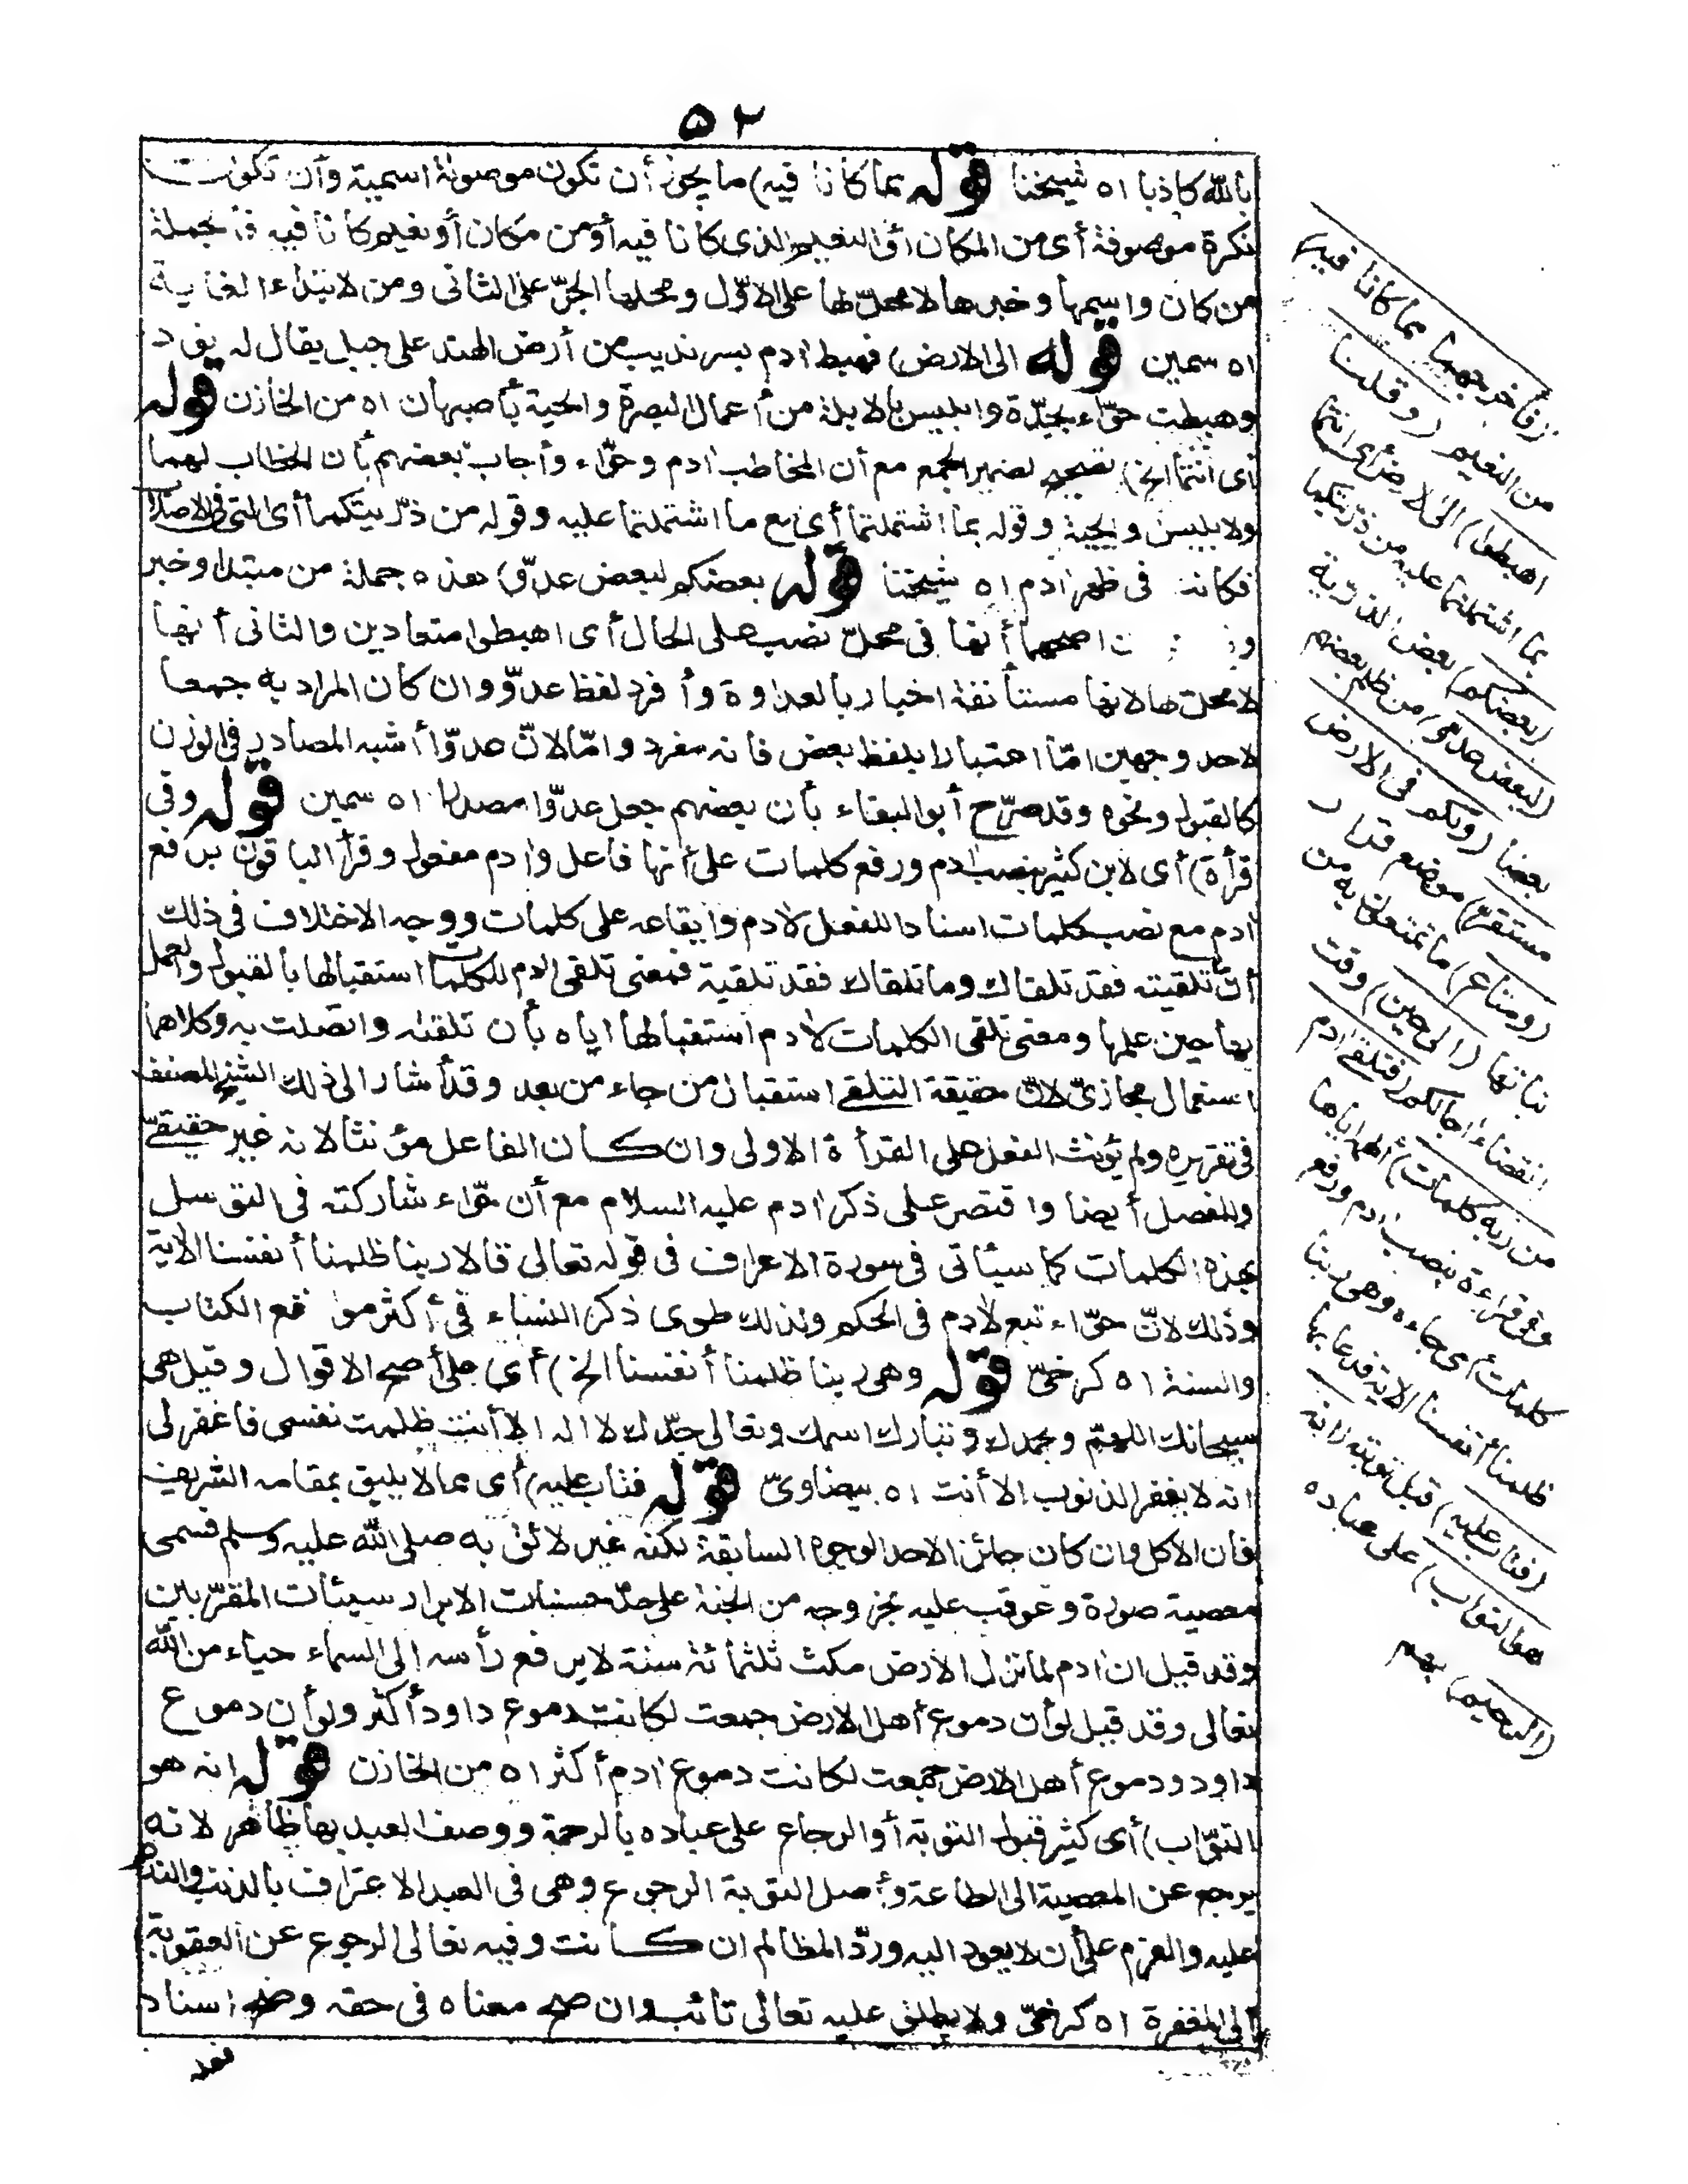 ٥٢
بالله كاذبا اه شيخنا قوله مما كانا فيه) ما يجوز أن تكون موصولة اسمية وأن تكون
نكرة موصوفة أى من المكان أو النعيم الذى كانا فيه أو من مكان أو نعيم كانا فيه فالجملة
من كان واسمها وخبرها لا محل لها على الاوّل ومحلها الجرّ على الثانى ومن لابتداء الغاية
اه سمين قوله الى الارض) فهبط اٰدم بسرنديب من أرض الهند على جبل يقال له نود
وهبطت حوّاء بجدّة وابليس بالابلة من أعمال البصرة والحية بأصبهان اه من الخازن قوله
أى أنتما الخ) تصحيح لضمير الجمع مع أن المخاطب اٰدم وحوّاء وأجاب بعضهم بأن الخطاب لهما
ولابليس والحية وقوله بما اشتملتما أى مع ما اشتملتما عليه وقوله من ذرّيتكما أى التى فى الاصلاب
فكانت فى ظهر اٰدم اه شيخنا قوله بعضكم لبعض عدوّ) هذه جملة من مبتدا وخبر
اصحهما أنها فى محلّ نصب على الحال أى اهبطوا متعادين والثانى أنها
لا محل لها لانها مستأنفة اخبار بالعداوة وأفرد لفظ عدوّ وان كان المراد به جمعا
لاحد وجهين امّا اعتبارا بلفظ بعض فانه مفرد وامّا لانّ عدوّا أشبه المصادر فى الوزن
كالقبول ونحوه وقد صرّح أبو البقاء بأن بعضهم جعل عدوّا مصدرا اه سمين قوله وفى
قرأة) أى لابن كثير بنصب اٰدم ورفع كلمات على أنها فاعل واٰدم مفعول وقرأ الباقون برفع
اٰدم مع نصب كلمات اسنادا للفعل لاٰدم وايقاعه على كلمات ووجه الاختلاف فى ذلك
أنّ ما تلقيته فقد تلقاك وما تلقاك فقد تلقيته فمعنى تلقى اٰدم للكلمات استقباله لها بالقبول والعمل
بها حين علمها ومعنى تلقى الكلمات لاٰدم استقبالها اياه بأن تلقته واتصلت به وكلاهما
استعمال مجازىّ لانّ حقيقة التلقى استقبال من جاء من بعد وقد أشار الى ذلك الشيخ المصنف
فى تقريره ولم يؤنث الفعل على القرأة الاولى وان كان الفاعل مؤنثا لانه غير حقيقىّ
وللفصل أيضا واقتصر على ذكر اٰدم عليه السلام مع أن حوّاء شاركته فى التوسل
بهذه الكلمات كما سيأتى فى سورة الاعراف فى قوله تعالى قالا ربنا ظلمنا أنفسنا الاٰية
وذلك لانّ حوّاء تبع لاٰدم فى الحكم ولذلك طوى ذكر النساء فى أكثر مواقع الكتاب
والسنة اه كرخىّ قوله وهى ربنا ظلمنا أنفسنا الخ) أى على أصح الاقوال وقيل هى
سبحانك اللهمّ وبحمدك وتبارك اسمك وتعالى جدّك لا اله الا أنت ظلمت نفسى فاغفر لى
انه لا يغفر الذنوب الا أنت اه بيضاوىّ قوله فتاب عليه) أى عما لا يليق بمقامه الشريف
فان الاكل وان كان جائزا لاحد الوجوه السابقة لكنه غير لائق به صلى الله عليه وسلم فسمى
معصية صورة وعوقب عليه بخروجه من الجنة على حدّ حسنات الابرار سيئات المقرّبين
وقد قيل ان اٰدم لما نزل الارض مكث ثلثمائة سنة لا يرفع رأسه إلى السماء حياء من الله
تعالى وقد قيل لو أن دموع أهل الارض جمعت لكانت دموع داود أكثر ولو أن دموع
داود ودموع أهل الارض جمعت لكانت دموع اٰدم أكثر اه من الخازن قوله انه هو
التوّاب) أى كثير قبول التوبة أو الرجاع على عباده بالرحمة ووصف العبد بها ظاهر لانه
يرجع عن المعصية الى الطاعة وأصل التوبة الرجوع وهى فى العبد الاعتراف بالذنب والندم
عليه والعزم على أن لا يعود اليه وردّ المظالم ان كانت وفيه تعالى الرجوع عن العقوبة
الى المغفرة اه كرخىّ ولا يطلق عليه تعالى تائب وان صح معناه فى حقه وصح اسناد
فعل
(فأخرجهما مما كانا فيه)
من النعيم (وقلنا
اهبطوا) الى الارض أى أنتما
بما اشتملتما عليه من ذرّيتكما
(بعضكم) بعض الذرّية
(لبعض عدوّ) من ظلم بعضهم
بعضا (ولكم فى الارض
مستقرّ) موضع قرار
(ومتاع) ما تتمتعون به من
نباتها (الى حين) وقت
انقضاء اٰجالكم (فتلقى اٰدم
من ربه كلمات) ألهمه اياها
وفى قراءة بنصب اٰدم ورفع
كلمات أى جاءه وهى ربنا
ظلمنا أنفسنا الاٰية فدعا بها
(فتاب عليه) قبل توبته (انه
هو التواب) على عباده
(الرحيم) بهم